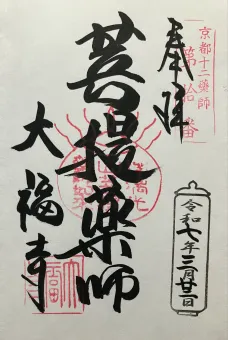 京都十二薬師
第拾番
奉拝
菩提薬師
大福寺
令和七年三月廿二日